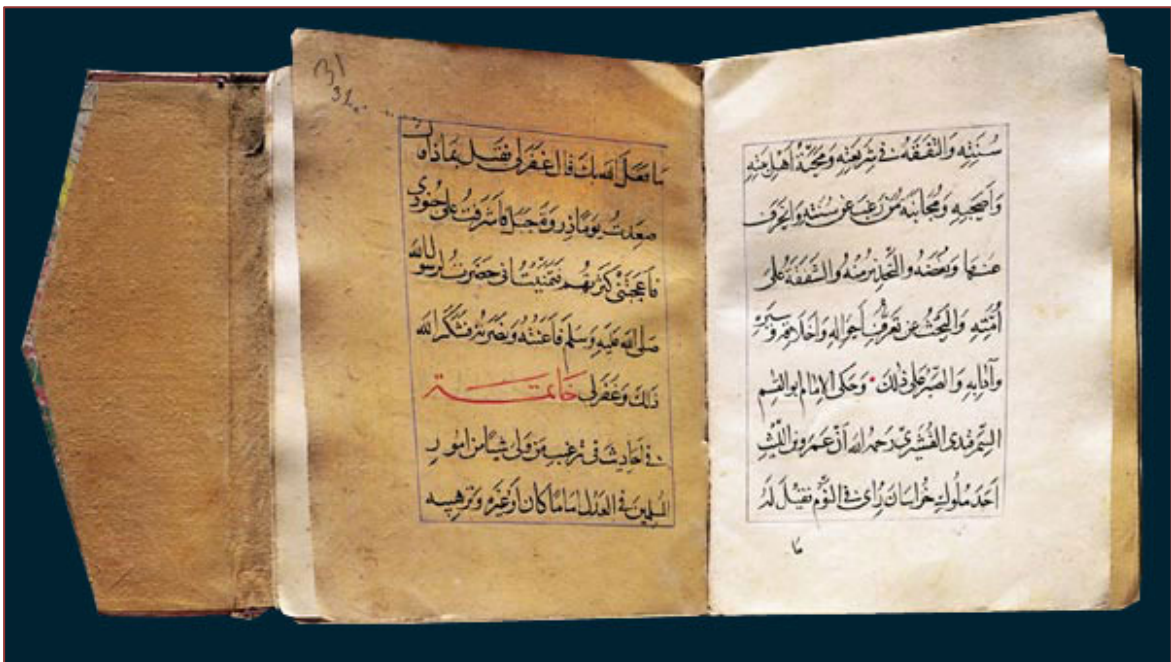 سُنَّتِهِ وَالتَّفَقُّهُ فِي شَرِيعَتِهِ وَمَحَبَّةُ أَهْلِ بَيْتِهِ
وَأَصْحَابِهِ وَمُجَانَبَةُ مَنْ رَغِبَ عَنْ سُنَّتِهِ وَانْحَرَفَ
عَنْهَا وَبُغْضُهُ وَالتَّحْذِيرُ مِنْهُ وَالشَّفَقَةُ عَلَى
أُمَّتِهِ وَالْبَحْثُ عَنْ تَعَرُّفِ أَحْوَالِهِ وَأَخْلَاقِهِ وَسِيَرِهِ
وَآدَابِهِ وَالصَّبْرُ عَلَى ذٰلِكَ وَحَكَى الْإِمَامُ أَبُو الْقٰسِمِ
القُشَيْرِيّ رَحِمَهُ اللهُ أَنَّ عَمْرَو بْنَ اللَّيْثِ
أَحَدَ مُلُوكِ خُرَاسَانَ رُأِىَ فِي النَّوْمِ فَقِيلَ لَهُ
31
مَا فَعَلَ اللهُ بِكَ قَالَ غَفَرَ لِي فَقِيلَ بِمَاذَا قَالَ
صَعِدْتُ يَوْمًا ذِرْوَةَ جَبَلٍ فَأَشْرَفْتُ عَلَى جُنُودِي
فَأَعْجَبَتْنِي كَثْرَتُهُمْ فَتَمَنَّيْتُ أَنِّي حَضَرْتُ لِرَسُولِ اللهِ
صَلَّى اللهُ عَلَيْهِ وَسَلَّمَ فَأَعَنْتُهُ وَنَصَرْتُهُ فَشَكَرَ اللهُ
ذٰلِكَ وَغَفَرَ لِي خَاتِمَة
فِي أَحَادِيثَ فِي تَرْغِيبِ مَنْ وَلِيَ شَيْئًا مِنْ أُمُورِ
الْمُسْلِمِينَ فِي الْعَدْلِ إِمَامًا كَانَ أَوْ غَيْرَهُ وَتَرْهِيبِهِ